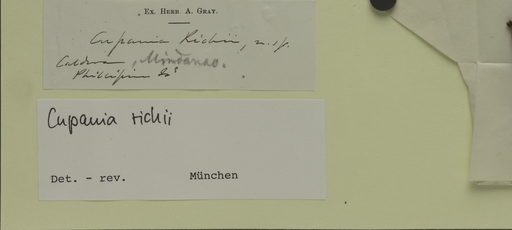 Ex. Herb. A. Gray.
Cupania Richii, n. sp.
Caldera, Mindanao.
Philippin Is
Cupania richii
Det. - rev. München